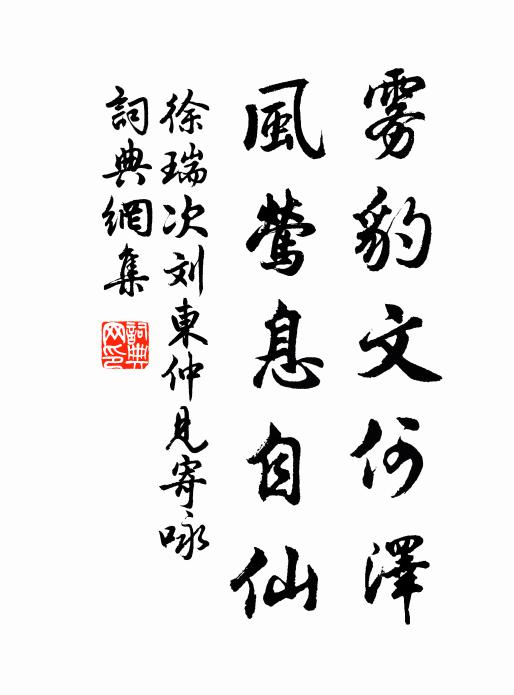 雾豹文何澤
風鶯息自仙
徐瑞次刘東仲見寄咏
詞典網集
詞典
网印